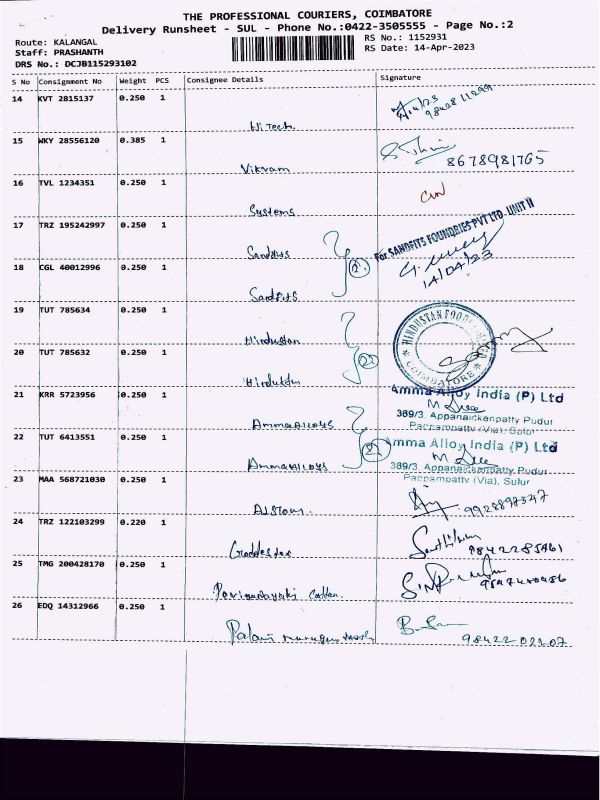 THE PROFESSIONAL COURIERS, COIMBATORE
Delivery Runsheet - SUL - Phone No.:0422-3505555 - Page No.:2
Route: KALANGAL
RS No.: 1152931
Staff: PRASHANTH
RS Date: 14-Apr-2023
DRS No.: DCJB115293102
S No Consignment No Weight PCS Consignee Details Signature
14 KVT 2815137 0.250 1
Hi Tech
15 WKY 28556120 0.385 1
8678981765
Vikram
16 TVL 1234351 0.250 1
Systems
17 TRZ 195242997 0.250 1
For SANDFITS FOUNDRIES PVT LTD. UNIT II
Sandfits
14/04/23
18 CGL 40012996 0.250 1
Sandfits
19 TUT 785634 0.250 1
HINDUSTAN
COIMBATORE
Hindustan
20 TUT 785632 0.250 1
21 KRR 5723956 0.250 1
Amma Alloy India (P) Ltd
389/3, Appanaickenpatty Pudur
Pappampatty (Via), Sulur
Amma Alloys
22 TUT 6413551 0.250 1
Amma Alloy India (P) Ltd
389/3, Appanaickenpatty Pudur
Pappampatty (Via), Sulur
Amma Alloys
23 MAA 568721030 0.250 1
24 TRZ 122103299 0.220 1
25 TMG 200428170 0.250 1
26 EDQ 14312966 0.250 1
Palani
98422 02207